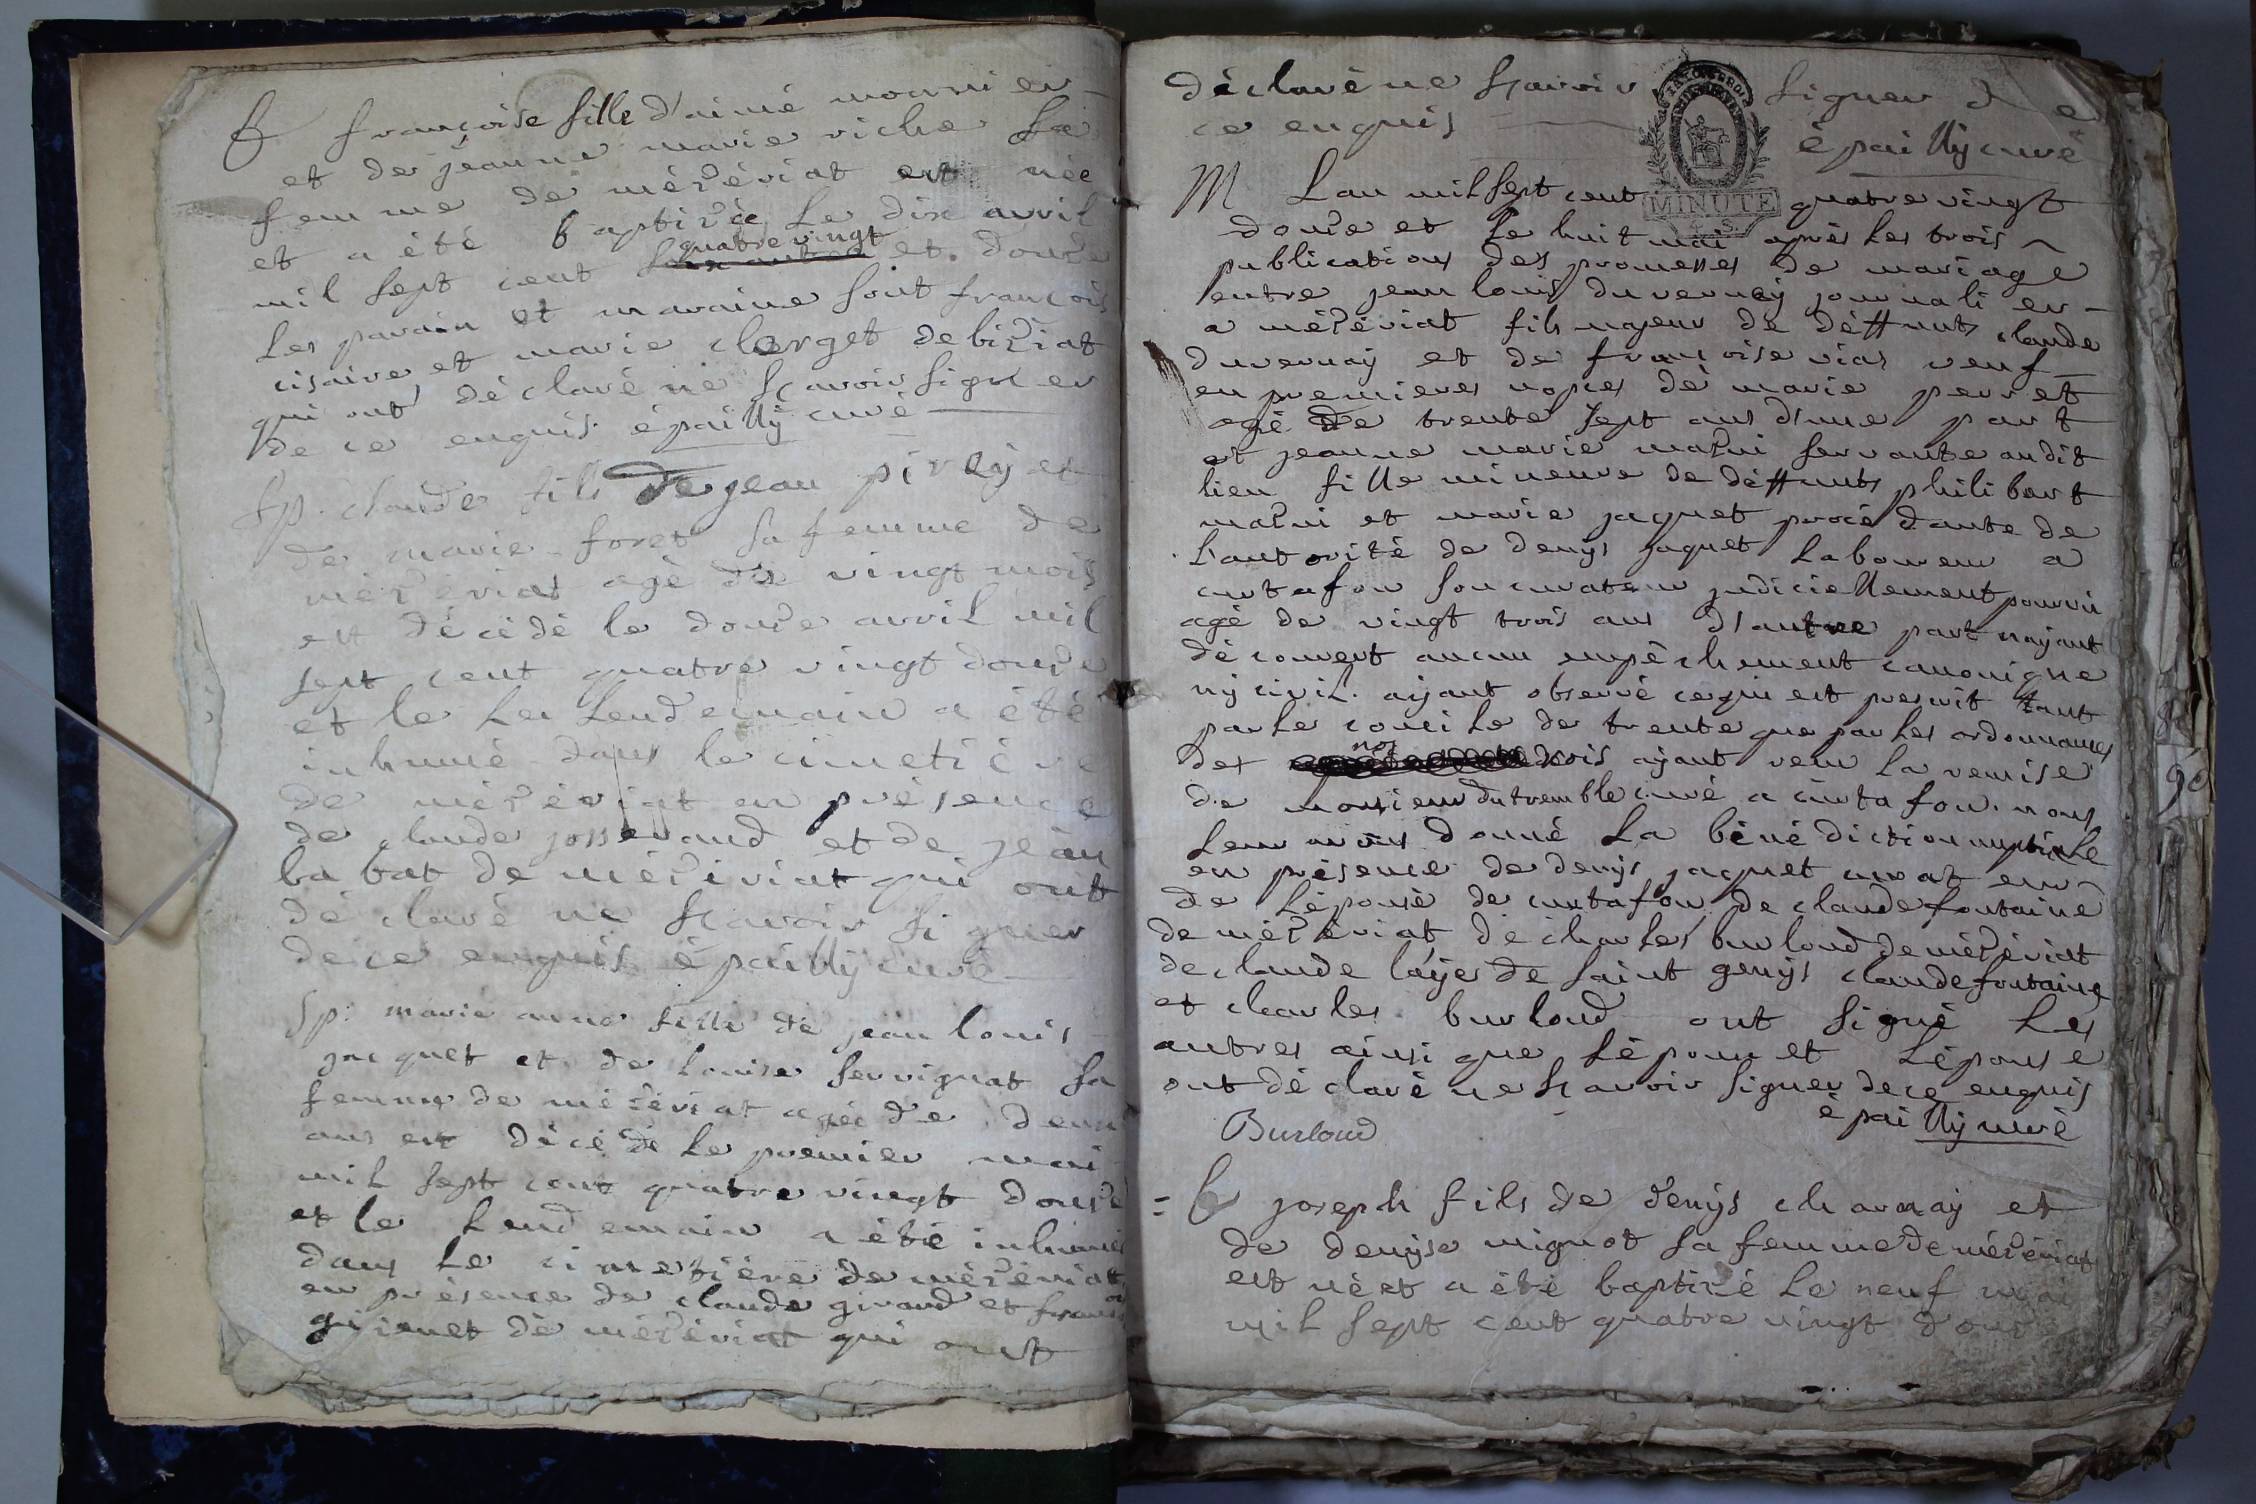 B françoise fille d'aimé mourrier
et de jeanne marie riche sa
femme de mézériat est née
et a été baptizée le dix avril
quatre vingt
mil sept cent soixante et douze
les parain et maraine sont francois
cisaire et marie clerget de biziat
qui ont déclaré ne scavoir signer
de ce enquis épailly curé
Sp. claude fils de jean pirey et
de marie foret sa femme de
mézériat agé de vingt mois
est décédé le douze avril mil
sept cent quatre vingt douze
et le les lendemain a été
inhumé dans le cimetière
de mézériat en présence
de claude josserand et de jean
babat de mézériat qui ont
déclaré ne scavoir signer
de ce enquis épailly curé
Sp: marie anne fille de jean louis
jacquet et de louise servignat sa
femme de mézériat agée de deux
ans est décédé le premier mai
mil sept cent quatre vingt douze
et le lendemain a été inhumée
dans le cimetière de mézériat
en présence de claude giraud et francois
de mézériat qui ont
déclaré ne scavoir signer de
ce enquis
épailly curé
MINUTE
4. S.
M Lan mil sept cent quatre vingt
douze et le huit mai après les trois
publications des promesses de mariage
entre jean louis duvernay journalier
a mézériat fils majeur de déffunts claude
duvernay et de francoise vias veuf
en premieres nopces de marie perret
agé de trente sept ans d'une part
et jeanne marie mazui servante audit
lieu fille mineure de déffunts philibert
mazui et marie jaquet procédante de
l'autorité de denys jaquet laboureur a
curtafon son curateur judiciellement pourvu
agé de vingt trois ans d'autre part nayant
découvert aucun empêchement canonique
ny civil. ayant observé ce qui est prescrit tant
par le concile de trente que par les ordonnances
nos
des rois ayant veu la remise
de monsieur dutremble curé a curtafon. nous
leur avons donné la bénédiction nuptiale
en présence de denys jaquet curateur
de l'épouse de curtafon de claude fontaine
de mézériat de charles burloud de mézériat
de claude layes de saint genys claude fontaine
et charles burloud ont signé les
autres ainsi que l'époux et l'épouse
ont déclaré ne scavoir signer de ce enquis
épailly curé
Burloud
= B joseph fils de denys charnay et
de denyse mignot sa femme de mézériat
est né et a été baptizé le neuf mai
mil sept cent quatre vingt douze